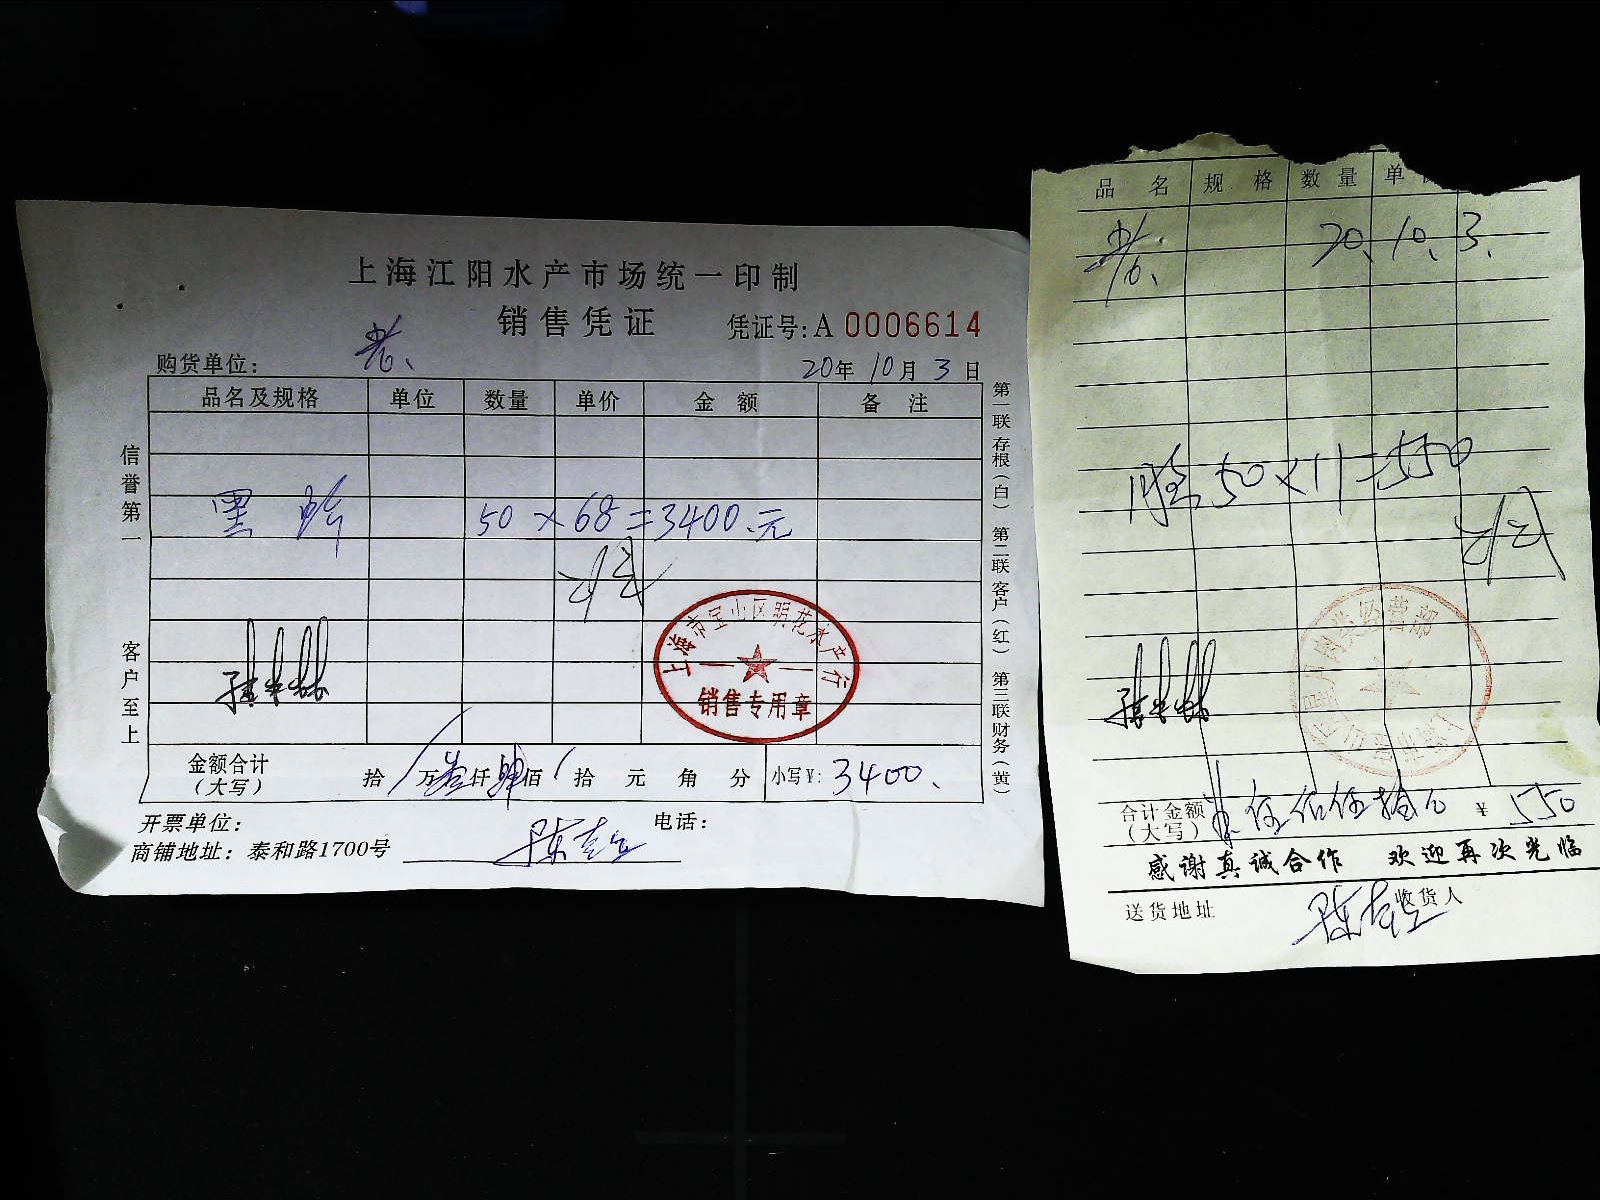 上海江阳水产市场统一印制
销售凭证
凭证号:A 0006614
购货单位:
20年 10月 3日
品名及规格 单位 数量 单价 金额 备注
黑 50 × 68 = 3400.元
上海市宝山区明花水产行
销售专用章
金额合计
(大写)
拾 万 叁 仟 肆 佰 拾 元 角 分 小写¥: 3400.
开票单位: 电话:
商铺地址: 泰和路1700号
信誉第一 客户至上
第一联存根(白) 第二联客户(红) 第三联财务(黄)
品名 规格 数量 单
20.10.3.
50×11=550
经营部
合计金额
(大写)
伍佰伍拾元 ¥ 550
感谢真诚合作 欢迎再次光临
送货地址 收货人